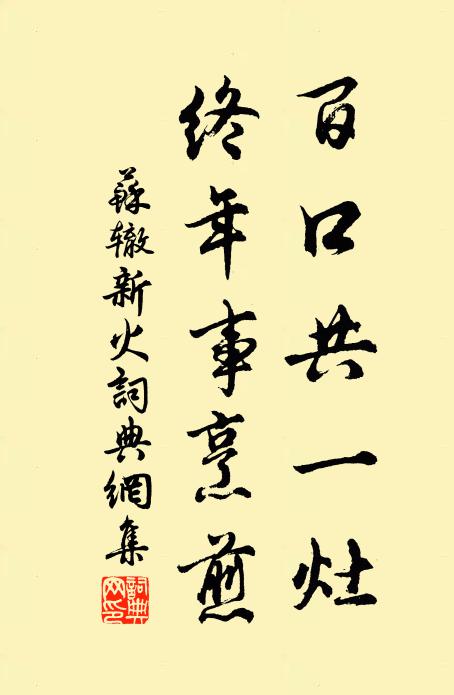 百口共一灶
终年事烹煎
蘇辙新火詞典網集
詞典網印